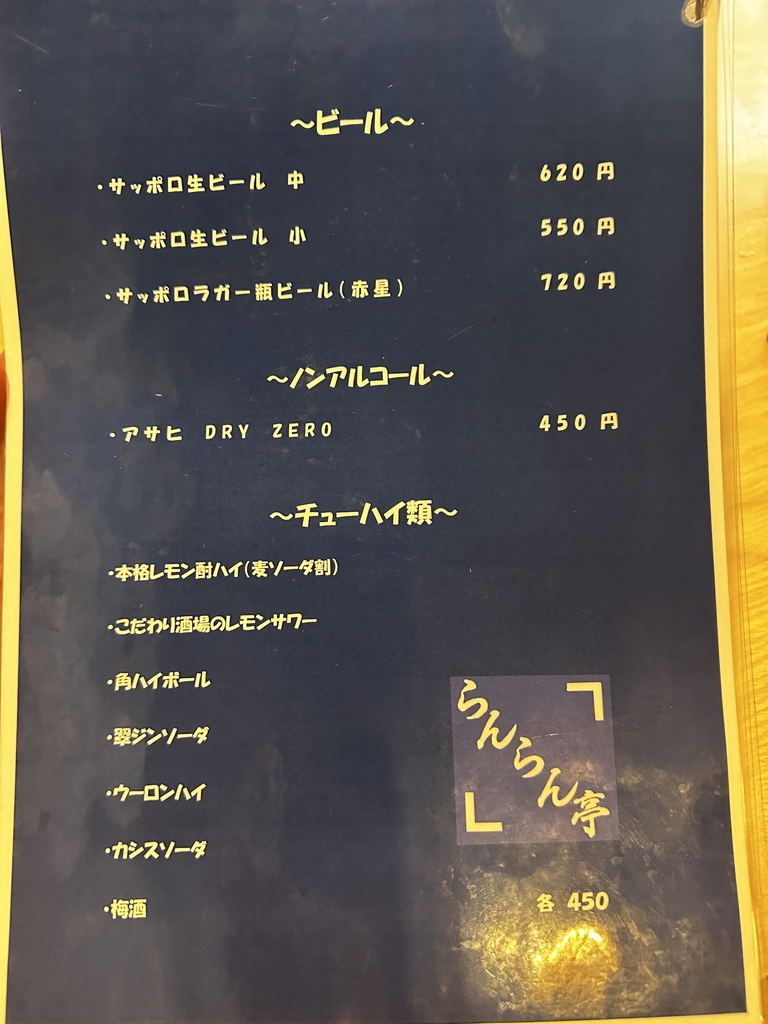 ～ビール～
・サッポロ生ビール　中　620 円
・サッポロ生ビール　小　550 円
・サッポロラガー瓶ビール(赤星)　720 円
～ノンアルコール～
・アサヒ　DRY　ZERO　450 円
～チューハイ類～
・本格レモン酎ハイ(麦ソーダ割)
・こだわり酒場のレモンサワー
・角ハイボール
・翠ジンソーダ
・ウーロンハイ
・カシスソーダ
・梅酒
らんらん亭
各 450